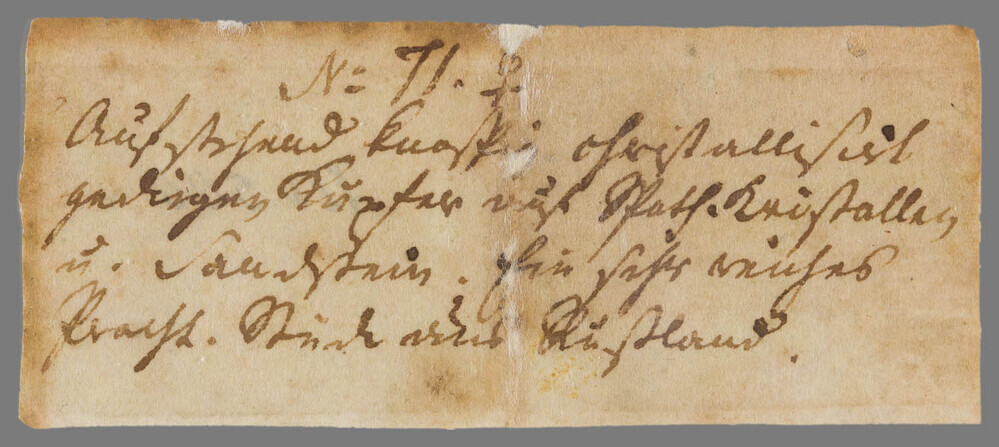 No 71. ♀.
Aufstehend knospig christallisirt
gediegen Kupfer auf Spath-Kristallen
u. Sandstein. Ein sehr reiches
Pracht-Stück aus Rußland.